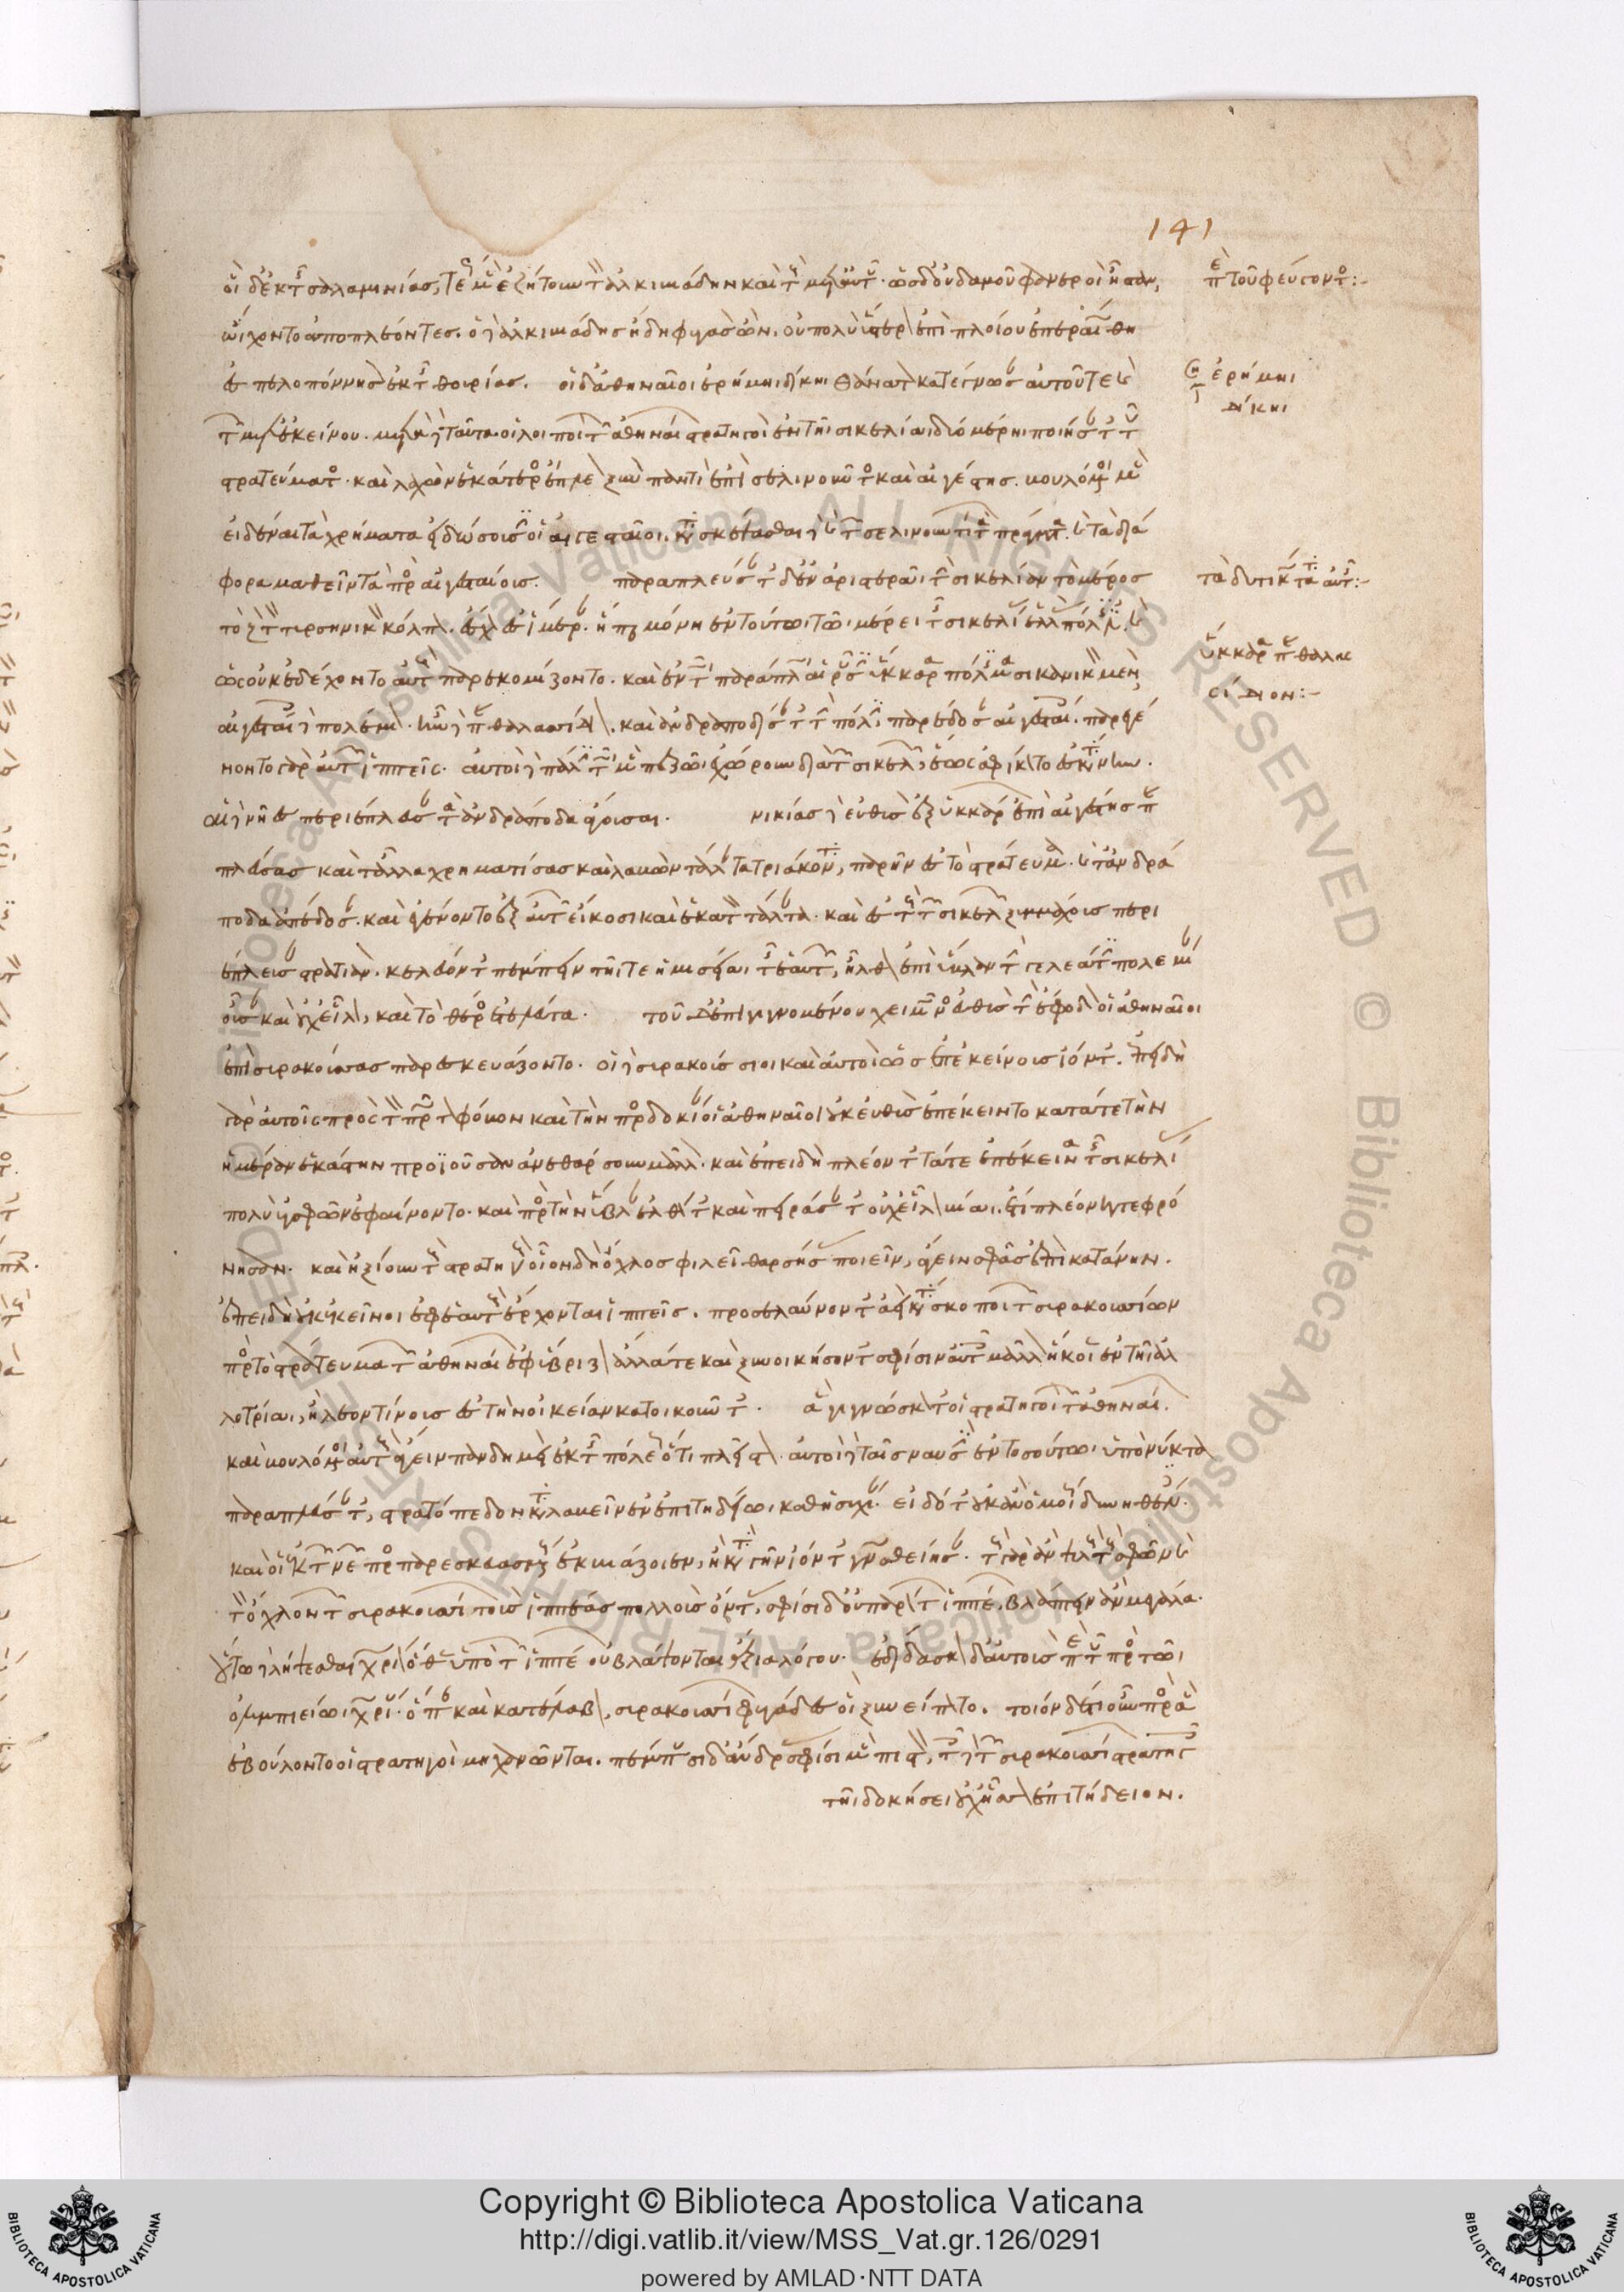 οἱ δ' ἐκ τῆς σαλαμινίας, τέως μὲν ἐζήτουν τὸν ἀλκιβιάδην καὶ τοὺς μετ' αὐτοῦ· ὡς δ' οὐδαμοῦ φανεροὶ ἦσαν,
ὤιχοντο ἀποπλέοντες. ὁ δὲ ἀλκιβιάδης ἤδη φυγὰς ὢν, οὐ πολὺ ὕστερον ἐπὶ πλοίου ἐπεραιώθη
ἐς πελοπόννησον ἐκ τῆς θουρίας. οἱ δ' ἀθηναῖοι ἐρήμηι δίκηι θάνατον κατέγνωσαν αὐτοῦ τε καὶ
τῶν μετ' ἐκείνου. μετὰ δὲ ταῦτα οἱ λοιποὶ τῶν ἀθηναίων στρατηγοὶ ἐν τῆι σικελίαι δύο μέρηι ποιήσαντες τοῦ
στρατεύματος· καὶ λαχὼν ἑκάτερος ἔπλεον ξὺν παντὶ ἐπὶ σελινοῦντος καὶ αἰγέστης. βουλόμενοι μὲν
εἰδέναι τὰ χρήματα εἰ δώσουσιν οἱ αἰγεσταῖοι. κατασκέψασθαι δὲ καὶ τῶν σελινουντίων τὰ πράγματα. καὶ τὰ διά
φορα μαθεῖν τὰ πρὸς αἰγεσταίους. παραπλεύσαντες δ' ἐν ἀριστερᾶι τὴν σικελίαν τὸ μέρος
τὸ πρὸς τὸν τυρσηνικὸν κόλπον. ἔσχον ἐς ἱμέραν. ἥπερ μόνη ἐν τούτωι τῶι μέρει τῆς σικελίας ἑλλὰς πόλις ἐστί. καὶ
ὡς οὐκ ἐδέχοντο αὐτοὺς παρεκομίζοντο. καὶ ἐν τῶι παράπλωι αἱροῦσιν ὕκκαρα πόλισμα σικανικὸν μὲν,
αἰγεσταίοις δὲ πολέμιον. ἦν δὲ παραθαλασσίδιον. καὶ ἀνδραποδίσαντες τὴν πόλιν παρέδοσαν αἰγεσταίοις. παρεγέ
νοντο γὰρ αὐτῶν ἱππεῖς. αὐτοὶ δὲ πάλιν τῶι μὲν πεζῶι ἐχώρουν διὰ τῶν σικελῶν, ἕως ἀφίκοντο ἐς κατάνην.
αἱ δὲ νῆες περιέπλευσαν τὰ ἀνδράποδα ἄγουσαι. νικίας δὲ εὐθὺς ἐξ ὑκκάρων ἐπὶ αἰγέστης παρα
πλεύσας καὶ τἆλλα χρηματίσας καὶ λαβὼν τάλαντα τριάκοντα, παρῆν ἐς τὸ στράτευμα. καὶ τἀνδρά
ποδα ἀπέδοσαν. καὶ ἐγένοντο ἐξ αὐτῶν εἴκοσι καὶ ἑκατὸν τάλαντα. καὶ ἐς τοὺς τῶν σικελῶν ξυμμάχους περι
έπλευσαν στρατιὰν κελεύοντες πέμπειν τῆι τε ἡμισείαι τῆς ἑαυτῶν, ἦλθον ἐπὶ ὕβλαν τὴν γελεᾶτιν πολεμίαν
οὖσαν καὶ οὐχ εἷλον, καὶ τὸ θέρος ἐτελεύτα. τοῦ δ' ἐπιγιγνομένου χειμῶνος εὐθὺς τὴν ἔφοδον οἱ ἀθηναῖοι
ἐπὶ συρακούσας παρεσκευάζοντο. οἱ δὲ συρακούσιοι καὶ αὐτοὶ ὡς ἐπ' ἐκείνους ἰόντες. ἐπειδὴ
γὰρ αὐτοῖς πρὸς τὸν πρῶτον φόβον καὶ τὴν προσδοκίαν οἱ ἀθηναῖοι οὐκ εὐθὺς ἐπέκειντο κατά τε τὴν
ἡμέραν ἑκάστην προϊοῦσαν ἀνεθάρσουν μᾶλλον. καὶ ἐπειδὴ πλέοντες τά τε ἐπέκεινα τῆς σικελίας
πολὺ ἀπὸ σφῶν ἐφαίνοντο. καὶ πρὸς τὴν ὕβλαν ἐλθόντες καὶ πειράσαντες οὐχ εἷλον βίαι. ἔτι πλέον κατεφρό
νησαν. καὶ ἠξίουν τοὺς στρατηγοὺς οἷον δὴ ὄχλος φιλεῖ θαρσήσας ποιεῖν, ἄγειν σφᾶς ἐπὶ κατάνην.
ἐπειδὴ οὐκ ἐκεῖνοι ἐφ' ἑαυτοὺς ἔρχονται ἱππεῖς. προσελαύνοντες ἀεὶ κατάσκοποι τῶν συρακουσίων
πρὸς τὸ στράτευμα τῶν ἀθηναίων ἐφύβριζον ἄλλα τε καὶ ξυνοικήσοντες σφίσιν αὐτοὶ μᾶλλον ἥκοιεν ἐν τῆι ἀλ
λοτρίαι, ἢ λεοντίνους ἐς τὴν οἰκείαν κατοικιοῦντες. ἃ γιγνώσκοντες οἱ στρατηγοὶ τῶν ἀθηναίων.
καὶ βουλόμενοι αὐτοὺς ἄγειν πανδημεὶ ἐκ τῆς πόλεως ὅτι πλεῖστον. αὐτοὶ δὲ ταῖς ναυσὶν ἐν τοσούτωι ὑπὸ νύκτα
παραπλεύσαντες, στρατόπεδον καταλαβεῖν ἐν ἐπιτηδείωι καθ' ἡσυχίαν. εἰδότες οὐκ ἂν ὁμοίως δυνηθέντες.
καὶ εἰ ἐκ τῶν νεῶν πρὸς παρεσκευασμένους ἐκβιβάζοιεν, ἢ κατὰ γῆν ἰόντες γνωσθείησαν. τοὺς γὰρ ἂν ψιλοὺς τοὺς σφῶν καὶ
τὸν ὄχλον τῶν συρακουσίων τοὺς ἱππέας πολλοὺς ὄντας, σφίσι δ' οὐ παρόντων ἱππέων, βλάπτειν ἂν μεγάλα.
οὕτω δὲ λήψεσθαι χωρίον ὅθεν ὑπὸ τῶν ἱππέων οὐ βλάψονται ἄξια λόγου. ἐδίδασκον δ' αὐτοὺς περὶ τοῦ πρὸς τῶι
ὀλυμπιείωι χωρίου. ὅπερ καὶ κατέλαβον, συρακουσίων φυγάδες οἳ ξυνείποντο. τοιόνδε τι οὖν πρὸς ἃ
ἐβούλοντο οἱ στρατηγοὶ μηχανῶνται. πέμπουσιν ἄνδρα σφίσι μὲν πιστὸν, τοῖς δὲ τῶν συρακουσίων στρατηγοῖς
τῆι δοκήσει οὐχ ἧσσον ἐπιτήδειον.
141
περὶ τοῦ φεύγοντος:-
ση ἐρήμηι
δίκηι
τὰ δυτικώτατα αὐτῆς:-
ὕκκαρα παραθαλασ
σίδιον:-
Copyright © Biblioteca Apostolica Vaticana
http://digi.vatlib.it/view/MSS_Vat.gr.126/0291
powered by AMLAD·NTT DATA